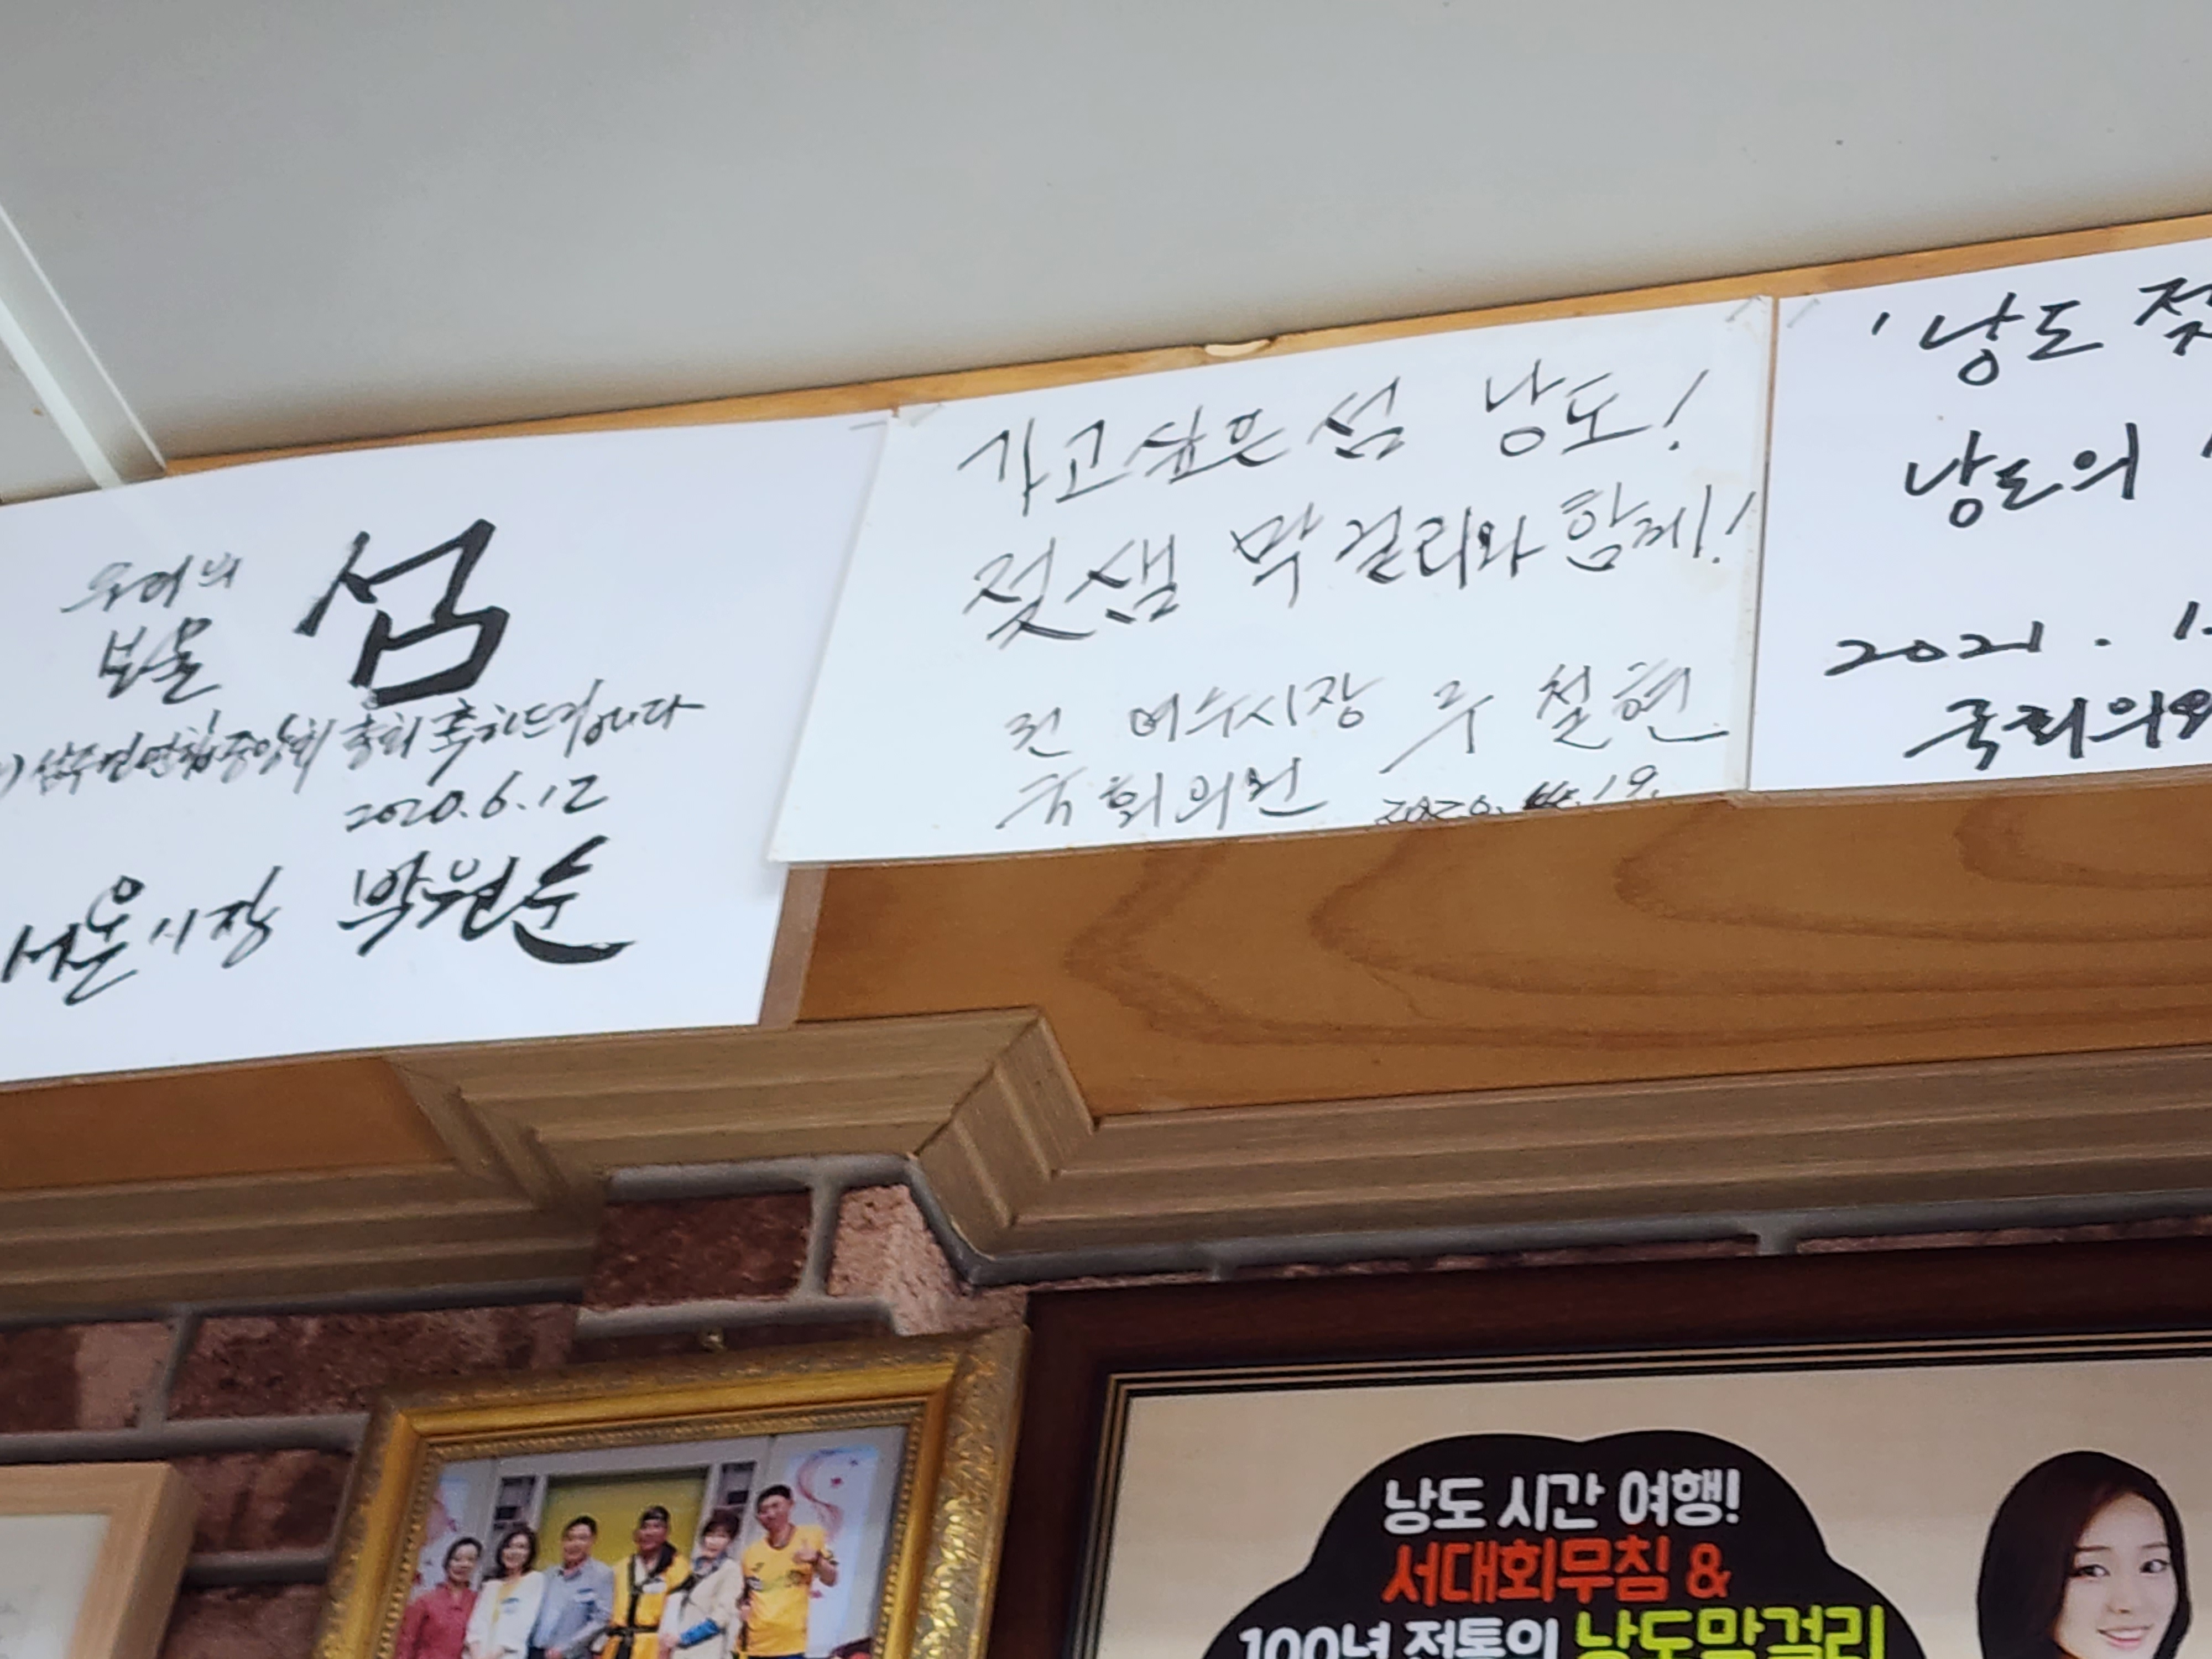 우리의
보물 섬
섬주민연합중앙회 총회 축하드립니다
2020.6.12
서울시장 박원순
가고싶은 섬 낭도!
젖샘 막걸리와 함께!
전 여수시장 주철현
국회의원 2020.
'낭도 젖
낭도의
2021. 1.
국회의원
낭도 시간 여행!
서대회무침 &
100년 전통의 낭도막걸리